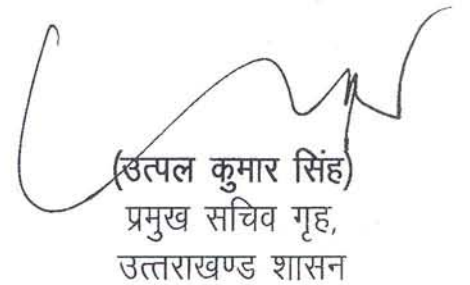 (उत्पल कुमार सिंह)
प्रमुख सचिव गृह,
उत्तराखण्ड शासन